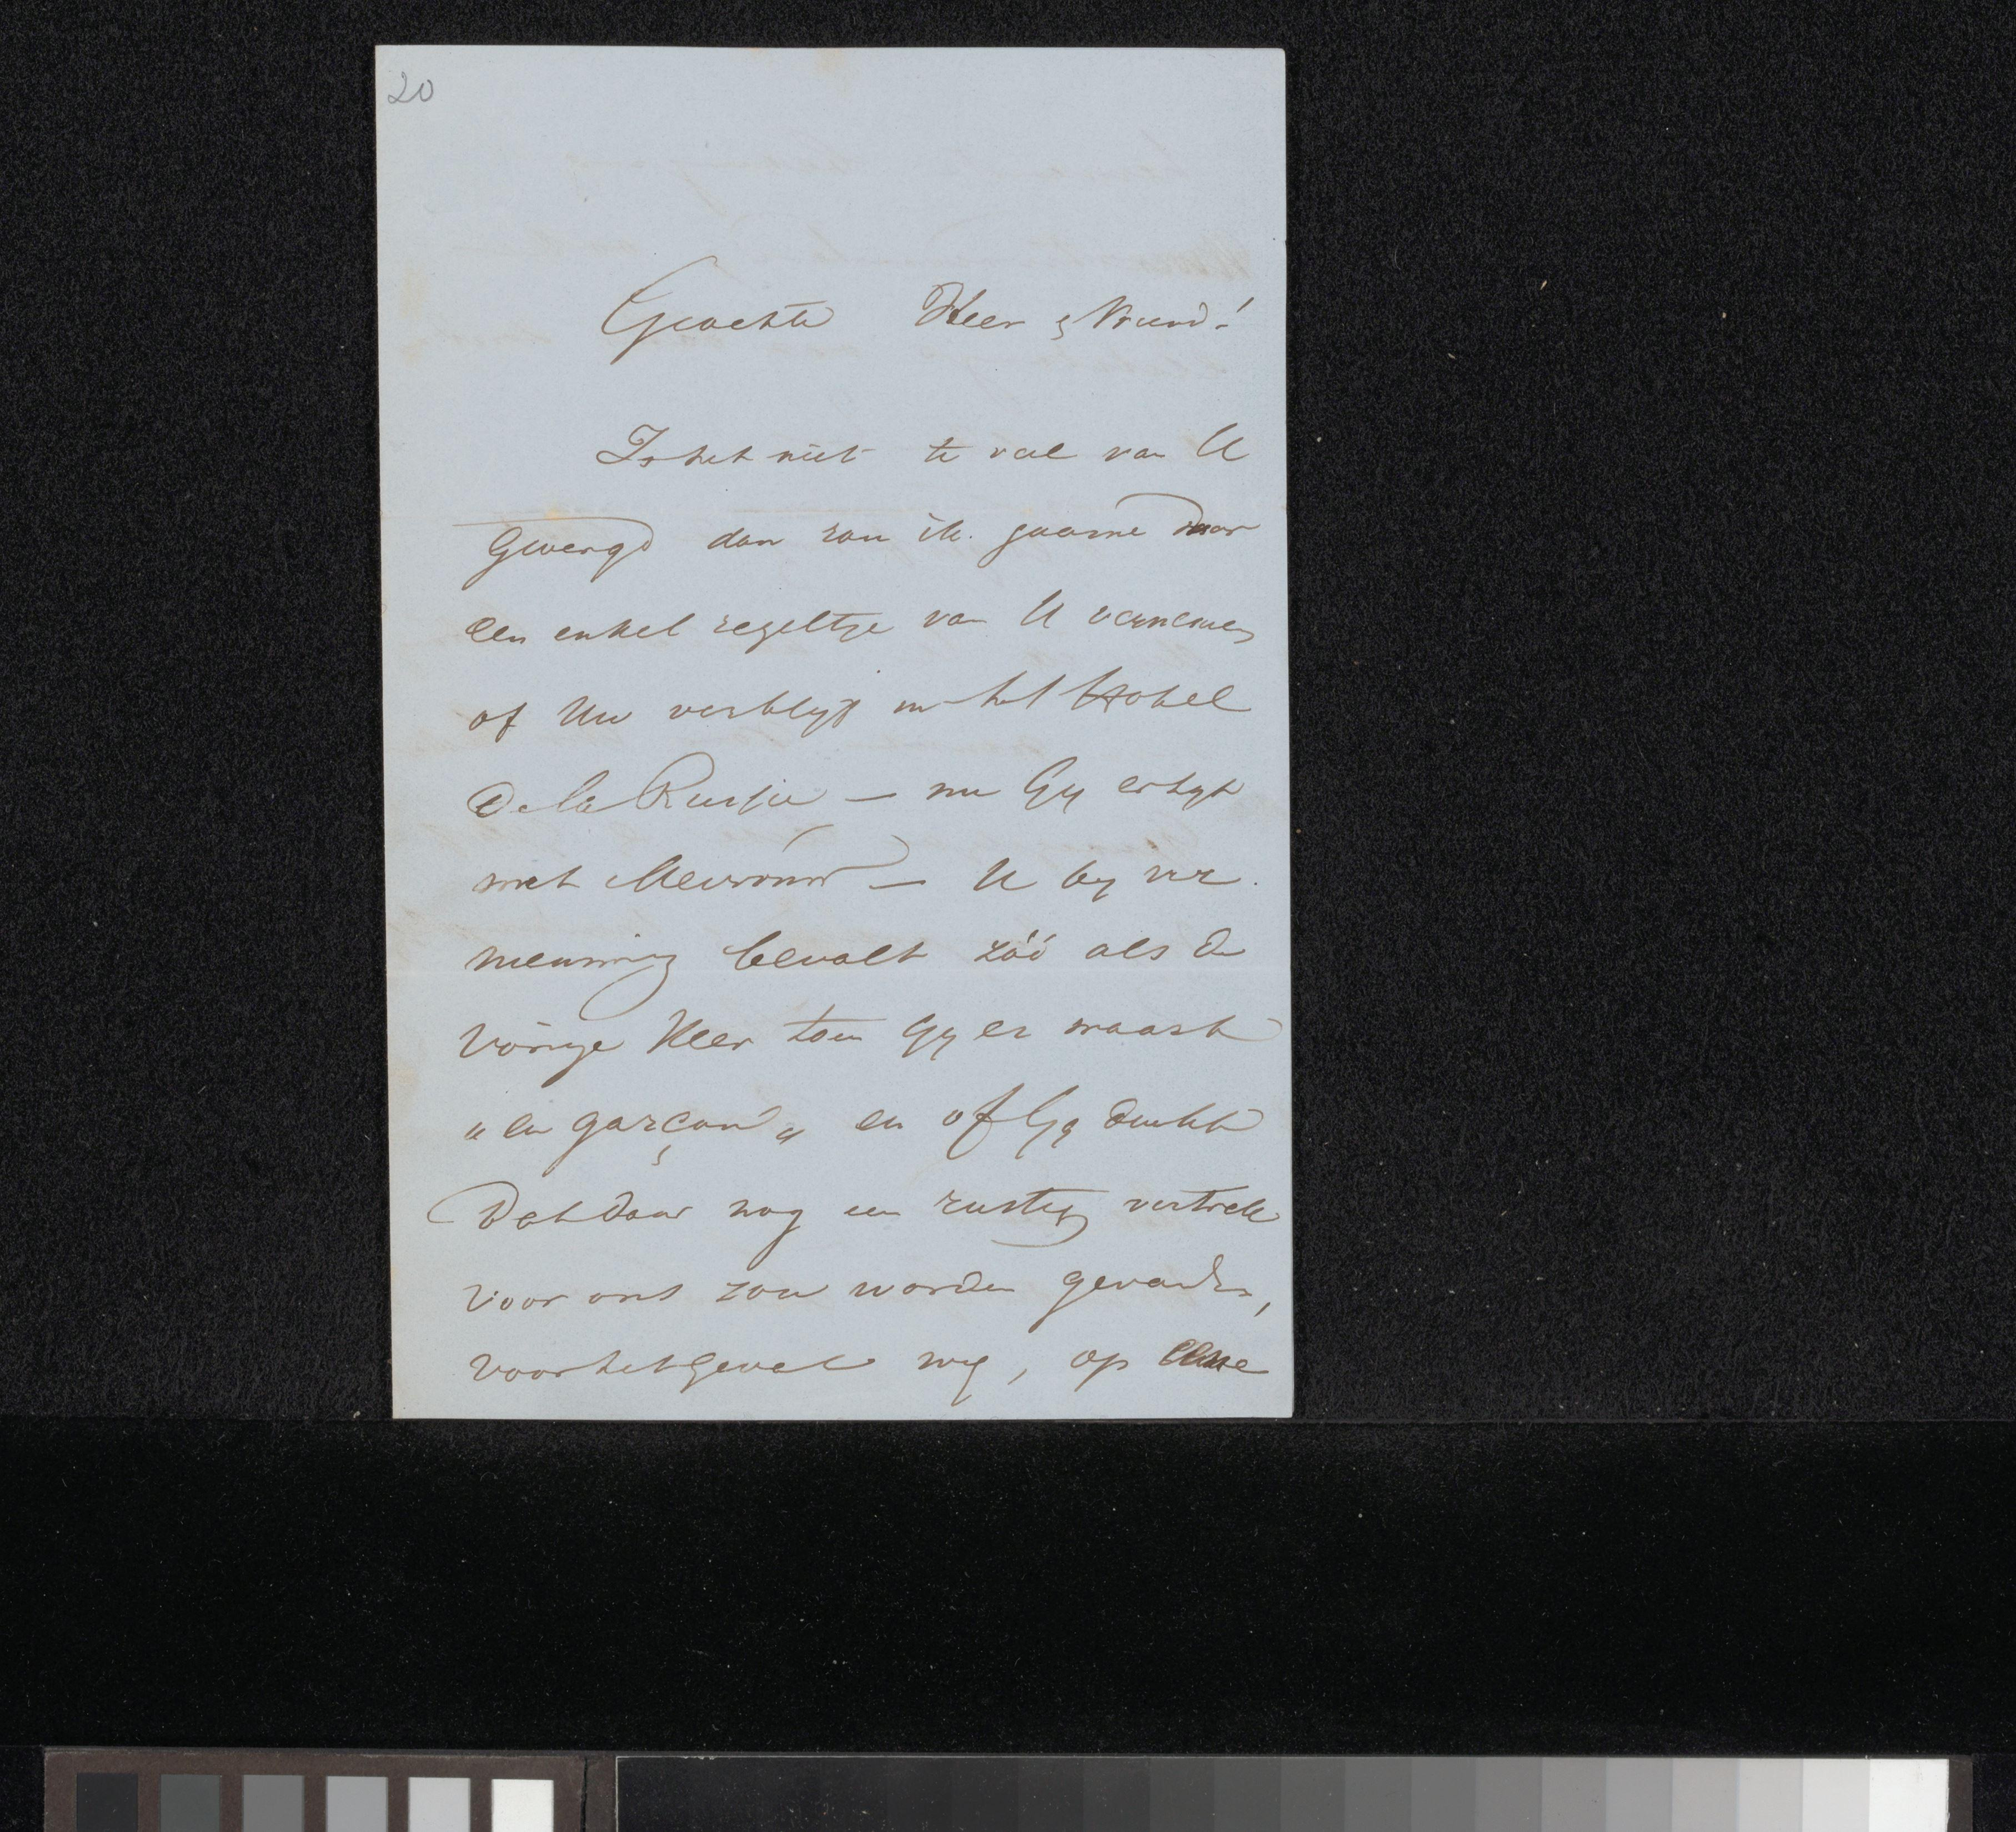 20
Geachte Heer & Vriend!
Is het niet te veel van U
gevergd dan zou ik gaarne door
een enkel regeltje van U vernemen
of Uw verblijf in het Hotel
De la Russie — nu Gij er zijt
met Mevrouw — U bij ver
nieuwing bevalt zóó als de
vorige Keer toen Gij er waart
„en garçon„ en of Gij denkt
Dat daar nog een rustig vertrek
voor ons zou worden gevonden,
voor het geval wij, op